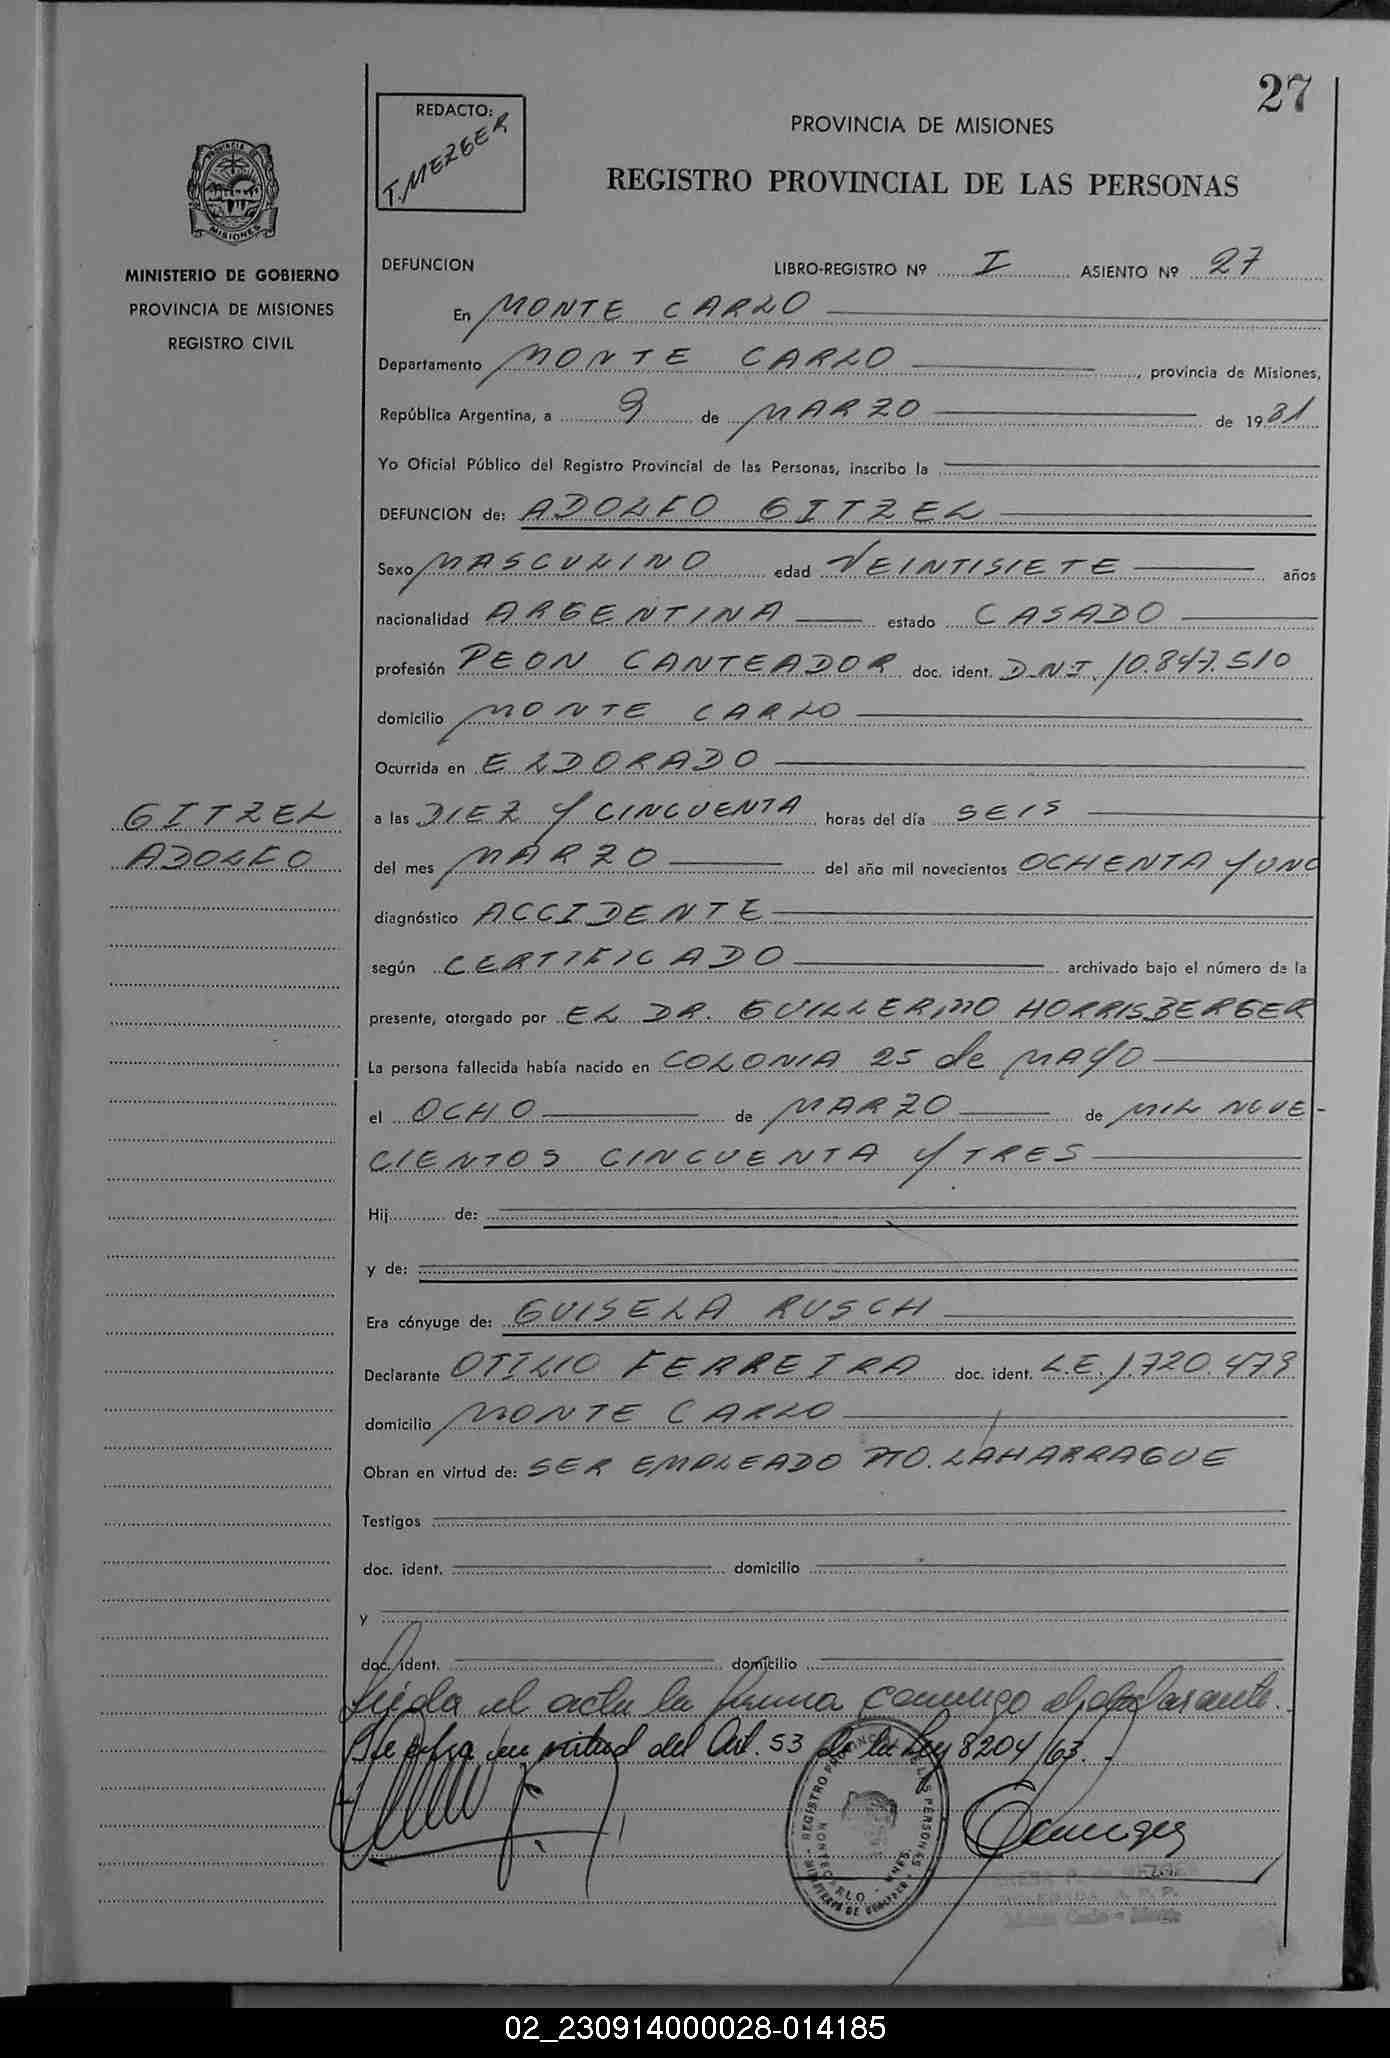 27
REDACTO:
T. MEZGER
PROVINCIA DE MISIONES
REGISTRO PROVINCIAL DE LAS PERSONAS
PROVINCIA DE
MISIONES
MINISTERIO DE GOBIERNO
PROVINCIA DE MISIONES
REGISTRO CIVIL
DEFUNCION LIBRO-REGISTRO Nº I ASIENTO Nº 27
En MONTE CARLO
Departamento MONTE CARLO, provincia de Misiones,
República Argentina, a 9 de MARZO de 1981
Yo Oficial Público del Registro Provincial de las Personas, inscribo la
DEFUNCION de: ADOLFO GITZEL
Sexo MASCULINO edad VEINTISIETE años
nacionalidad ARGENTINA estado CASADO
profesión PEON CANTEADOR doc. ident. D.N.I. 10.847.510
domicilio MONTE CARLO
Ocurrida en ELDORADO
GITZEL
ADOLFO
a las DIEZ Y CINCUENTA horas del día SEIS
del mes MARZO del año mil novecientos OCHENTA Y UNO
diagnóstico ACCIDENTE
según CERTIFICADO archivado bajo el número de la
presente, otorgado por EL DR. GUILLERMO HORRISBERGER
La persona fallecida había nacido en COLONIA 25 de MAYO
el OCHO de MARZO de MIL NOVE-
CIENTOS CINCUENTA Y TRES
Hij de:
y de:
Era cónyuge de: GUISELA RUSCH
Declarante OTILIO FERREIRA doc. ident. L.E. 1.720.479
domicilio MONTE CARLO
Obran en virtud de: SER EMPLEADO PTO. LAHARRAGUE
Testigos
doc. ident. domicilio
y
doc. ident. domicilio
Leída el acta la firma conmigo el declarante.
en virtud del Art. 53 de la Ley 8204/63.
REGISTRO PROVINCIAL DE LAS PERSONAS
MONTECARLO - MNES.
MINISTERIO DE GOBIERNO
02_230914000028-014185